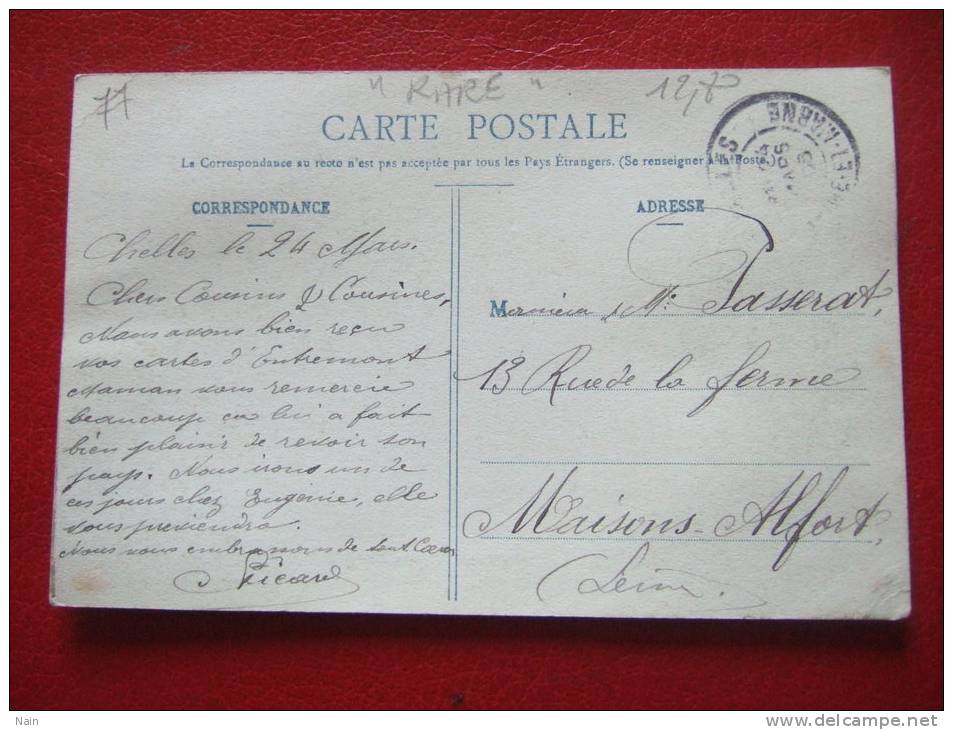 77
" RARE "
12,70
CARTE POSTALE
La Correspondance au recto n'est pas acceptée par tous les Pays Étrangers. (Se renseigner à la Poste.)
CORRESPONDANCE
Chelles le 24 Mars.
Chers Cousins & Cousines,
Nous avons bien reçu
vos cartes d'Entremont
Maman vous remercie
beaucoup ca lui a fait
bien plaisir de revoir son
pays. Nous irons un de
ces jours chez Eugénie, elle
vous previendra.
Nous vous embrassons de tout Coeur
Picard
ADRESSE
Monsieur & Me Passerat,
13 Rue de la ferme
Maisons-Alfort,
Seine.
ET-MARNE
Nain
www.delcampe.net